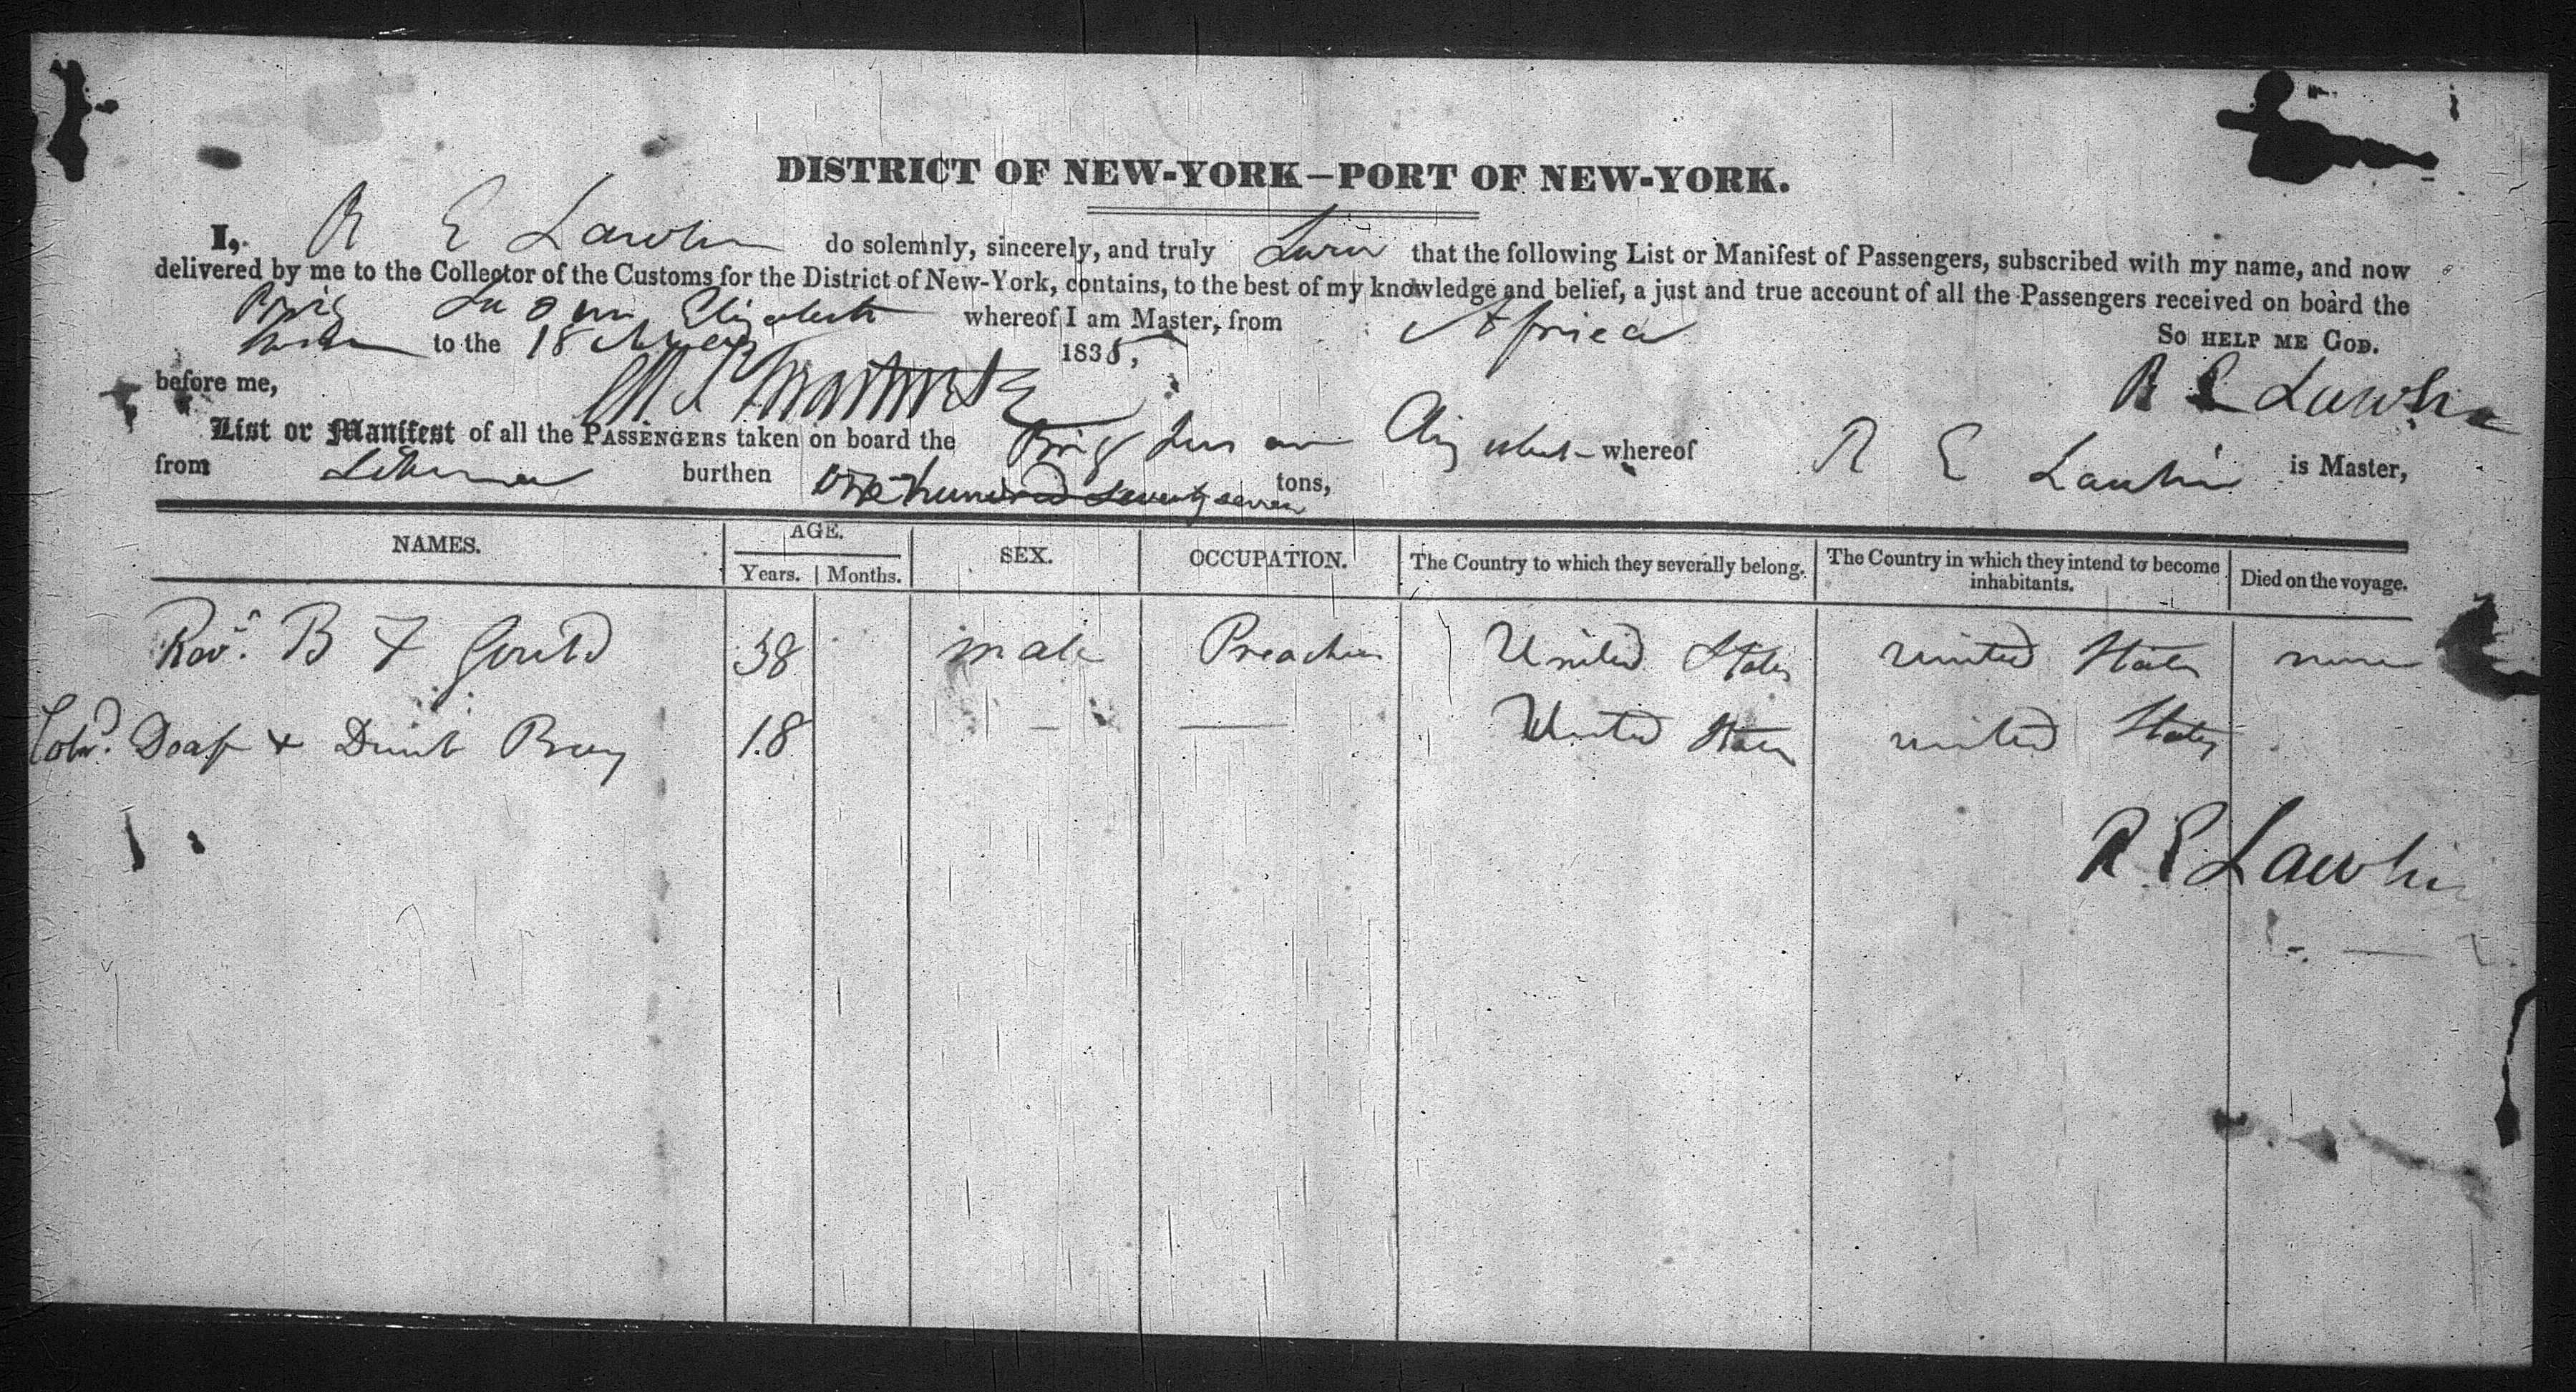 DISTRICT OF NEW-YORK—PORT OF NEW-YORK.
I, R E Lawlin do solemnly, sincerely, and truly that the following List or Manifest of Passengers, subscribed with my name, and now
delivered by me to the Collector of the Customs for the District of New-York, contains, to the best of my knowledge and belief, a just and true account of all the Passengers received on board the
Brig Elizabeth whereof I am Master, from Africa
to the 18 1835, So HELP ME GOD.
before me, R E Lawlin
List or Manifest of all the PASSENGERS taken on board the Brig whereof R E Lawlin is Master,
from Liberia burthen one hundred seventy seven tons,
NAMES. AGE. Years. Months. SEX. OCCUPATION. The Country to which they severally belong. The Country in which they intend to become inhabitants. Died on the voyage.
Revd. B F Gould 38 male Preacher United States United States none
Cold. Deaf & Dumb Boy 18 — — United States United States
R E Lawlin